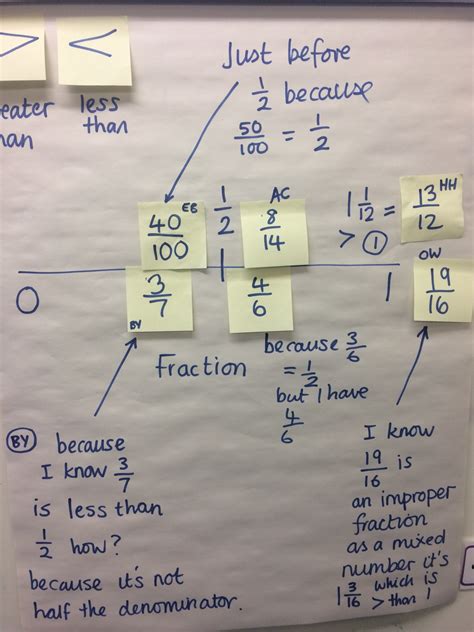 > <
eater less
han than
Just before
1/2 because
50/100 = 1/2
40/100 EB
1/2
AC
8/14
1 1/12 =
> 1
13/12 HH
0
3/7
BY
4/6
1
OW
19/16
Fraction
because 3/6
= 1/2
but I have
4/6
BY because
I know 3/7
is less than
1/2 how?
because it's not
half the denominator.
I know
19/16 is
an improper
fraction
as a mixed
number it's
1 3/16 which is
> than 1